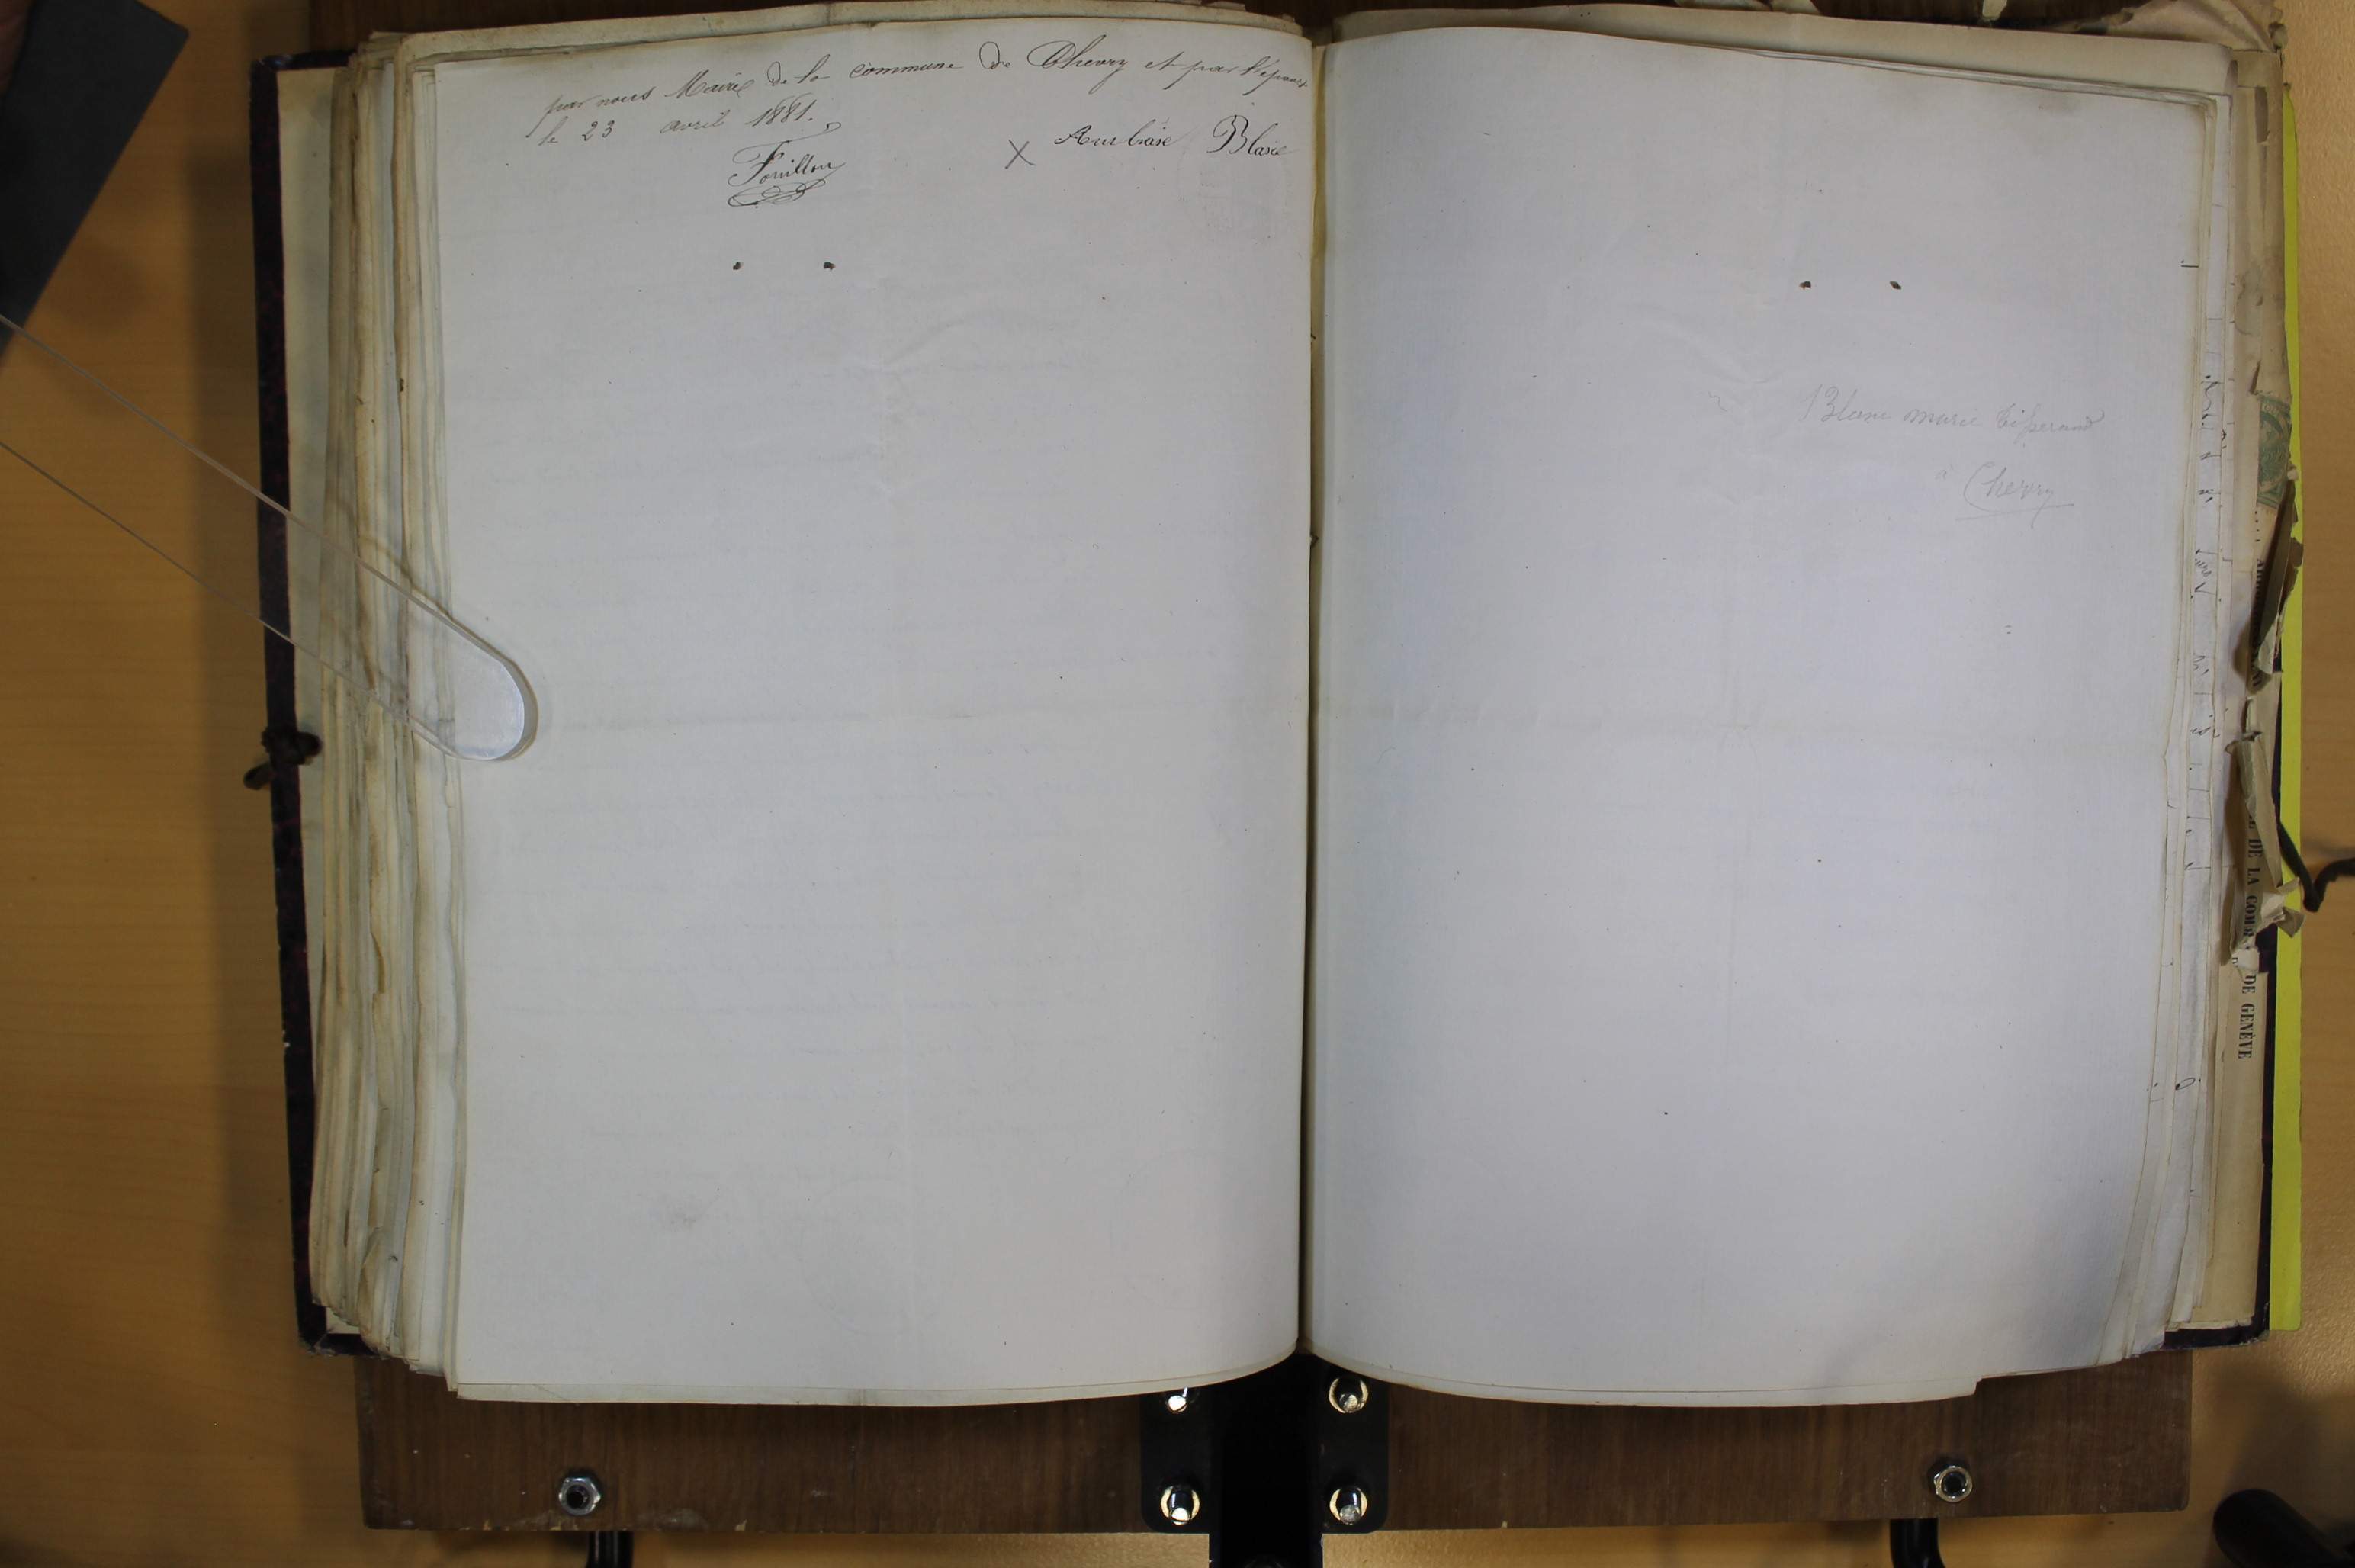 par nous Maire de la commune de Chevry et par l'époux
le 23 avril 1881.
X Ambaise Blase
Fouillou
Blase marie tisserand
à Chevry
DE LA COM
DE GENÈVE